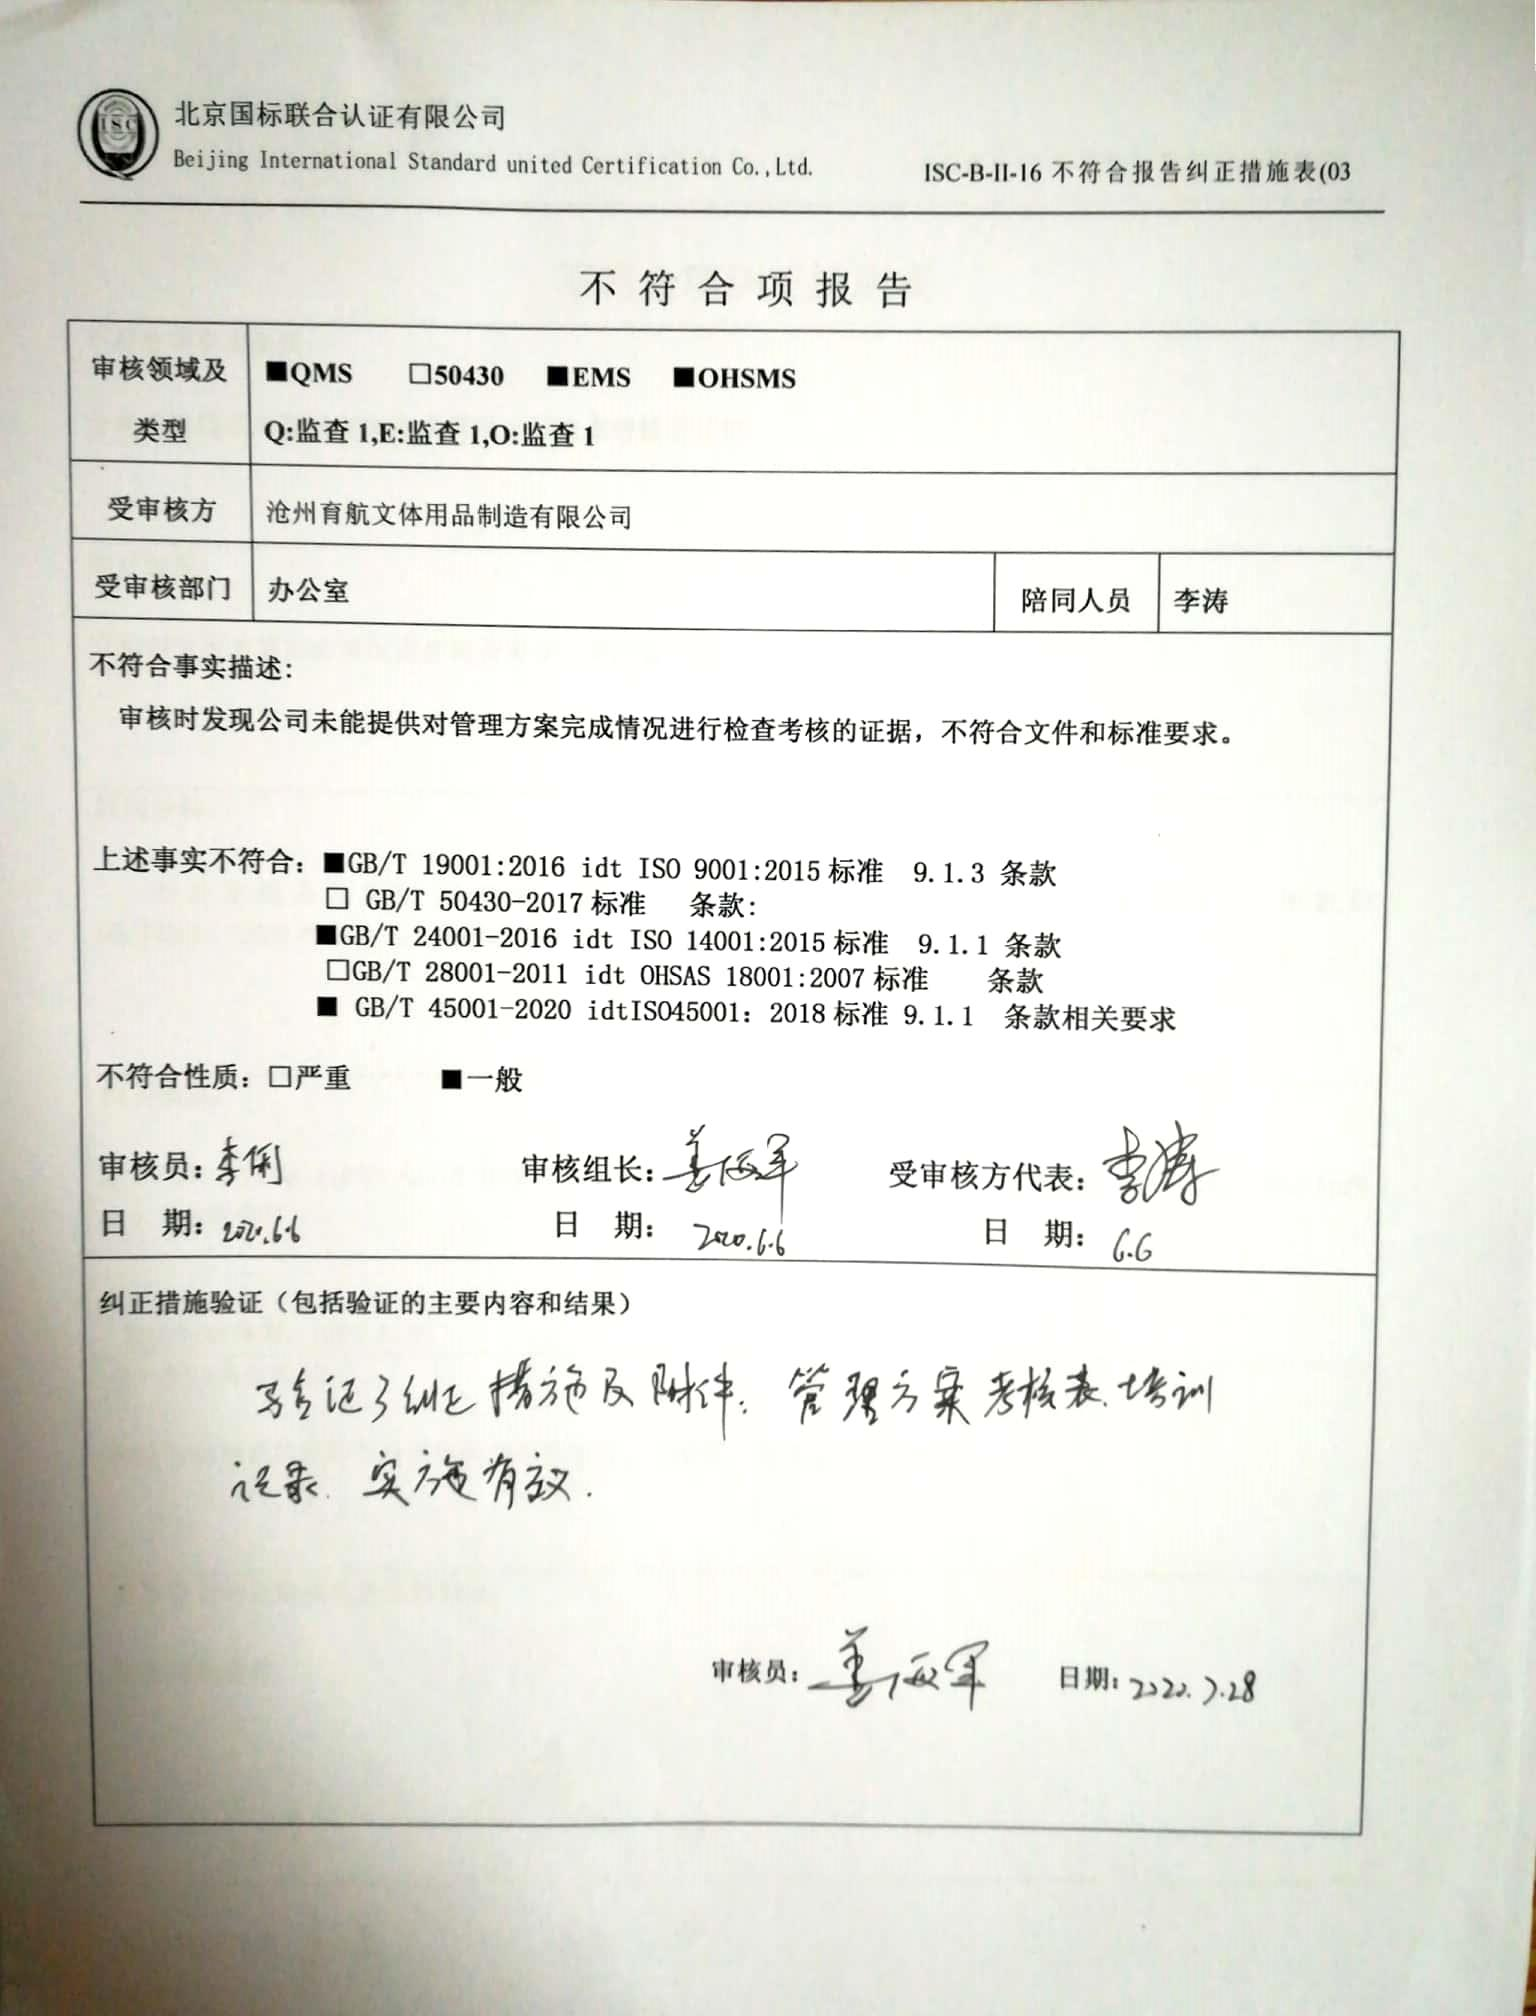 ISC
北京国标联合认证有限公司
Beijing International Standard united Certification Co.,Ltd.
ISC-B-II-16 不符合报告纠正措施表(03
不符合项报告
审核领域及类型
■QMS □50430 ■EMS ■OHSMS
Q:监查 1,E:监查 1,O:监查 1
受审核方 沧州育航文体用品制造有限公司
受审核部门 办公室 陪同人员 李涛
不符合事实描述:
审核时发现公司未能提供对管理方案完成情况进行检查考核的证据，不符合文件和标准要求。
上述事实不符合：■GB/T 19001:2016 idt ISO 9001:2015 标准 9.1.3 条款
□ GB/T 50430-2017 标准 条款:
■GB/T 24001-2016 idt ISO 14001:2015 标准 9.1.1 条款
□GB/T 28001-2011 idt OHSAS 18001:2007 标准 条款
■ GB/T 45001-2020 idtISO45001：2018 标准 9.1.1 条款相关要求
不符合性质：□严重 ■一般
审核员: 李俐 审核组长: 姜海军 受审核方代表: 李涛
日 期: 2020.6.6 日 期: 2020.6.6 日 期: 6.6
纠正措施验证（包括验证的主要内容和结果）
验证了纠正措施及附件：管理方案考核表、培训
记录、实施有效.
审核员: 姜海军 日期: 2020.7.28